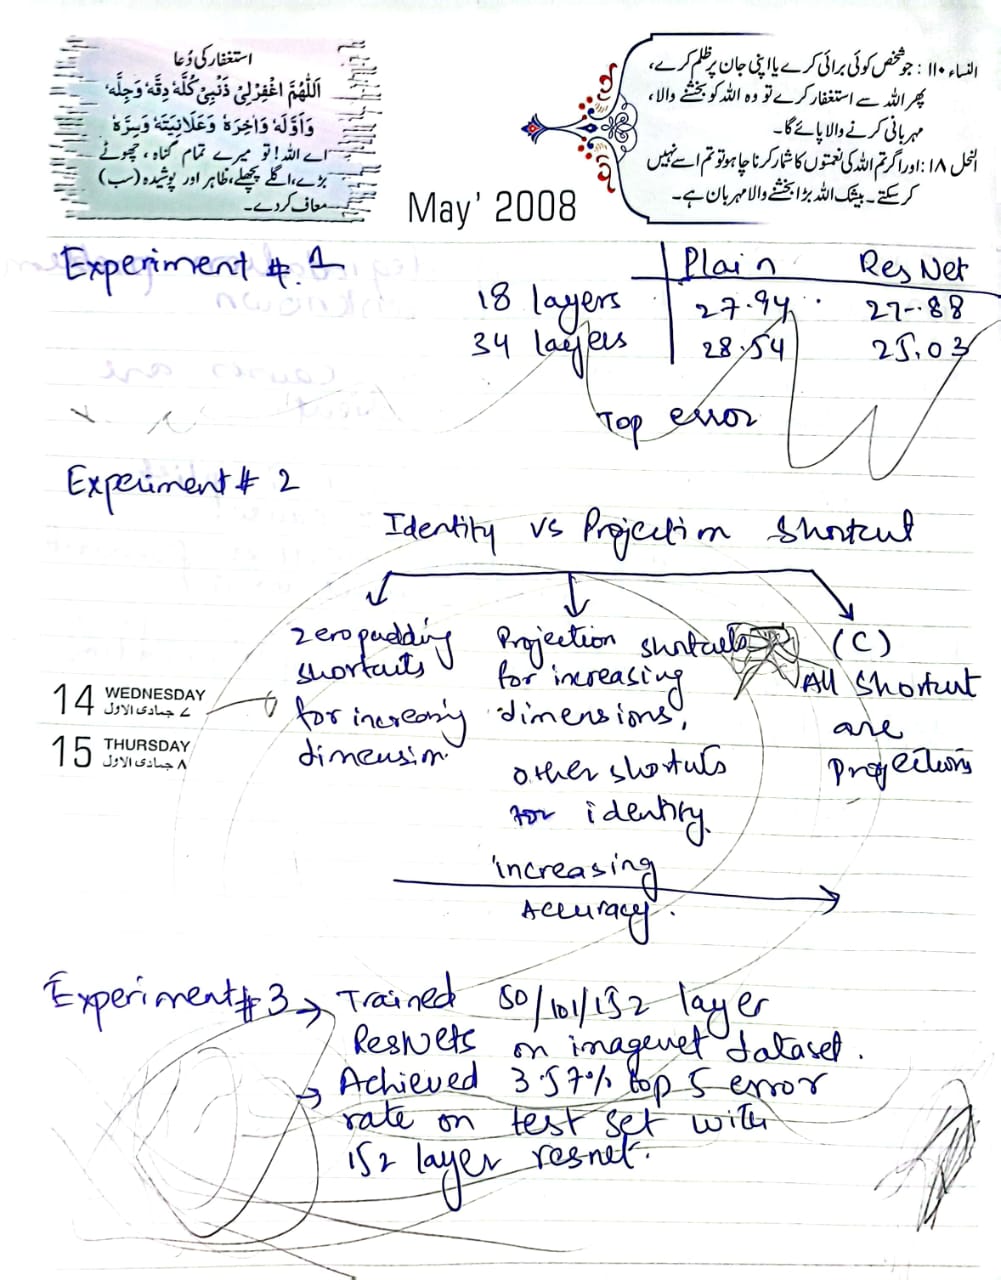 استغفار کی دُعا
اَللّٰهُمَّ اغْفِرْلِیْ ذَنْۢبِیْ كُلَّهٗ دِقَّهٗ وَجِلَّهٗ
وَاَوَّلَهٗ وَاٰخِرَهٗ وَعَلَانِیَتَهٗ وَسِرَّهٗ
اے اللہ! تو میرے تمام گناہ، چھوٹے
بڑے، اگلے پچھلے، ظاہر اور پوشیدہ (سب)
معاف کردے۔
النساء ۱۱۰ : جو شخص کوئی برائی کرے یا اپنی جان پر ظلم کرے،
پھر اللہ سے استغفار کرے تو وہ اللہ کو بخشنے والا،
مہربانی کرنے والا پائے گا۔
النحل ۱۸ : اور اگر تم اللہ کی نعمتوں کا شمار کرنا چاہو تو تم اسے نہیں
کر سکتے۔ بیشک اللہ بڑا بخشنے والا مہربان ہے۔
May' 2008
Experiment #.1
Plain ResNet
18 layers 27.94 27.88
34 layers 28.54 25.03
Top error
Experiment # 2
Identity vs Projection Shortcut
zero padding
shortcuts
for increasing
dimension.
Projection shortcuts
for increasing
dimensions,
other shortcuts
for identity.
(C)
All Shortcut
are
projections
14 WEDNESDAY
۷ جمادی الاول
15 THURSDAY
۸ جمادی الاول
increasing
Accuracy.
Experiment # 3 → Trained 50/101/152 layer
ResNets on imagenet dataset.
→ Achieved 3.57% top 5 error
rate on test set with
152 layer resnet.